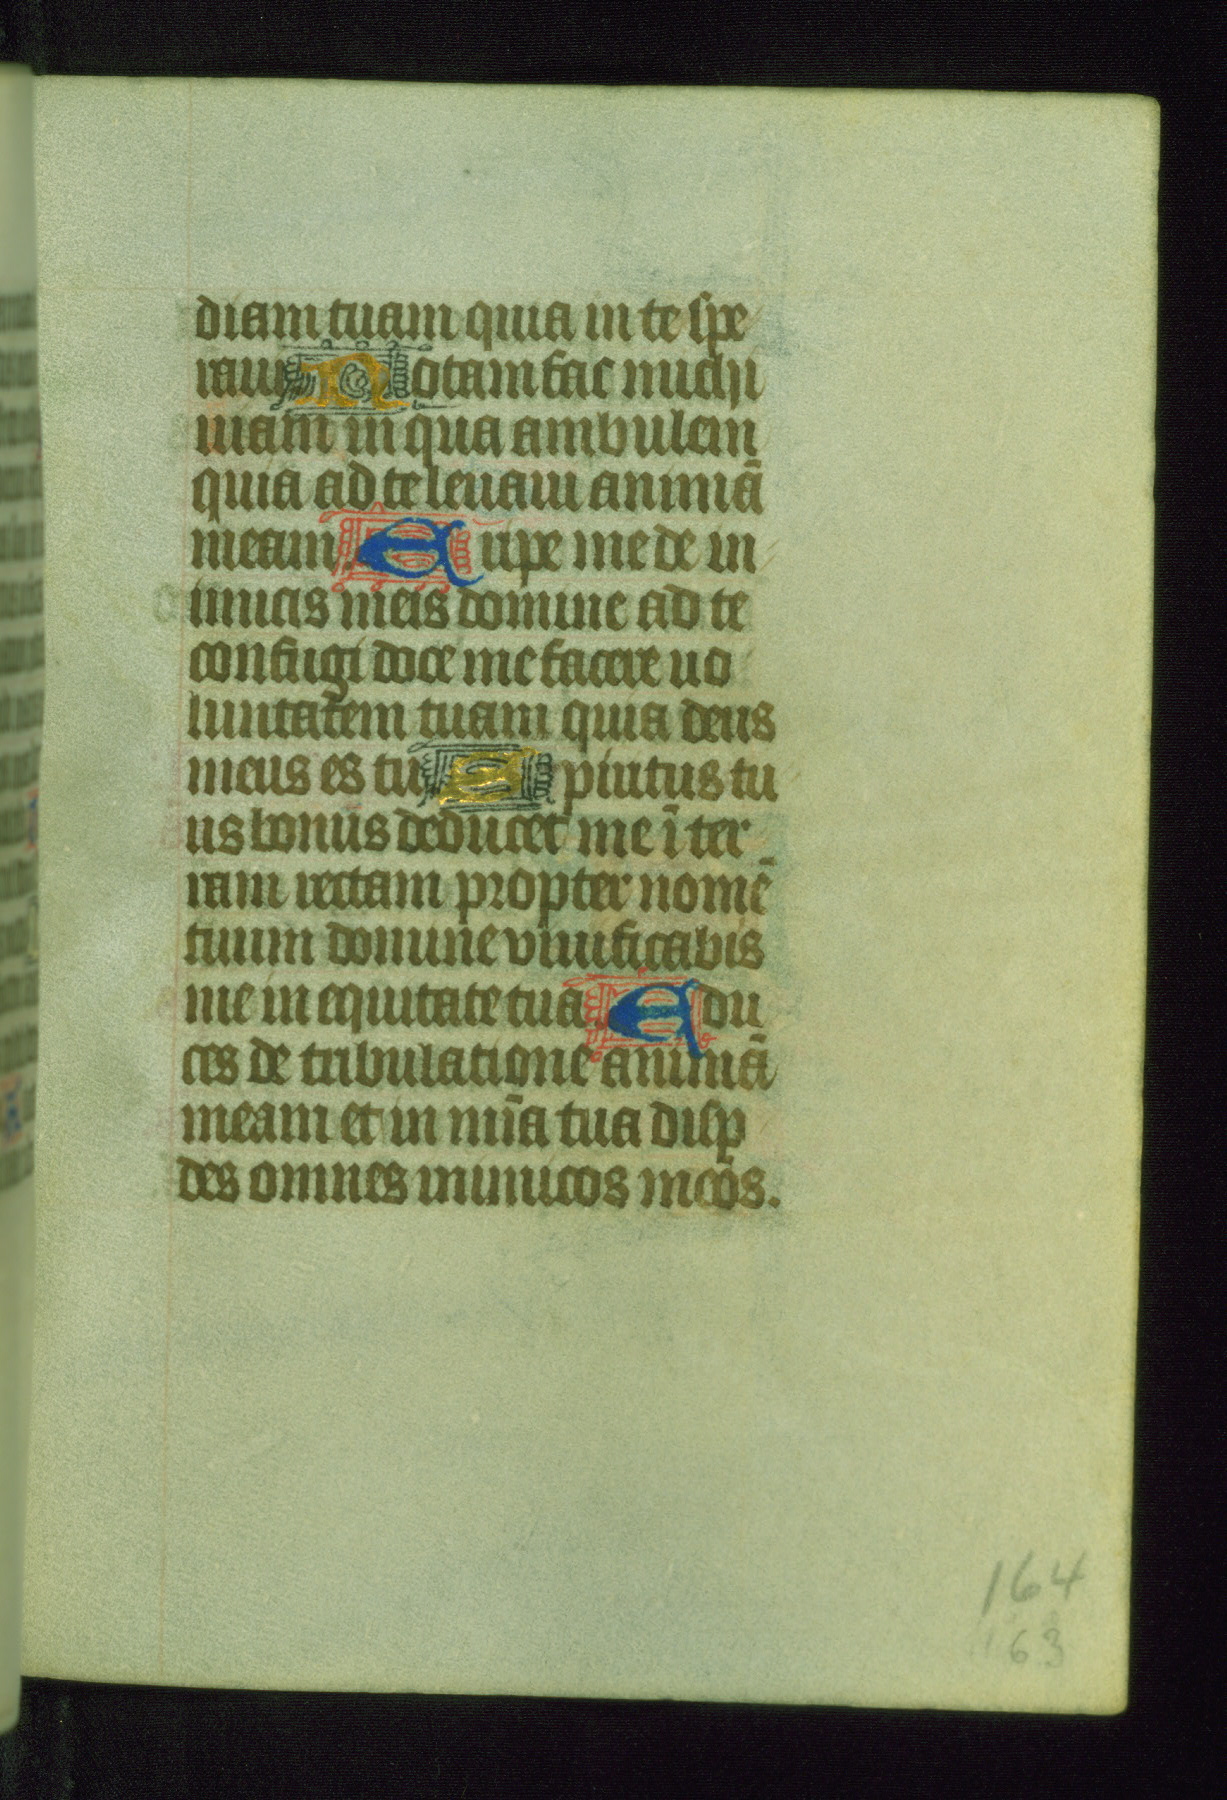 diam tuam quia in te spe
raui Notam fac michi
uiam in qua ambulem
quia ad te leuaui animā
meam Eripe me de in
imicis meis domine ad te
confugi doce me facere uo
luntatem tuam quia deus
meus es tu Spiritus tu
us bonus deducet me ī ter
ram rectam propter nomē
tuum domine viuificabis
me in equitate tua Edu
ces de tribulatione animā
meam et in mīa tua disp
des omnes inimicos meos.
164
163